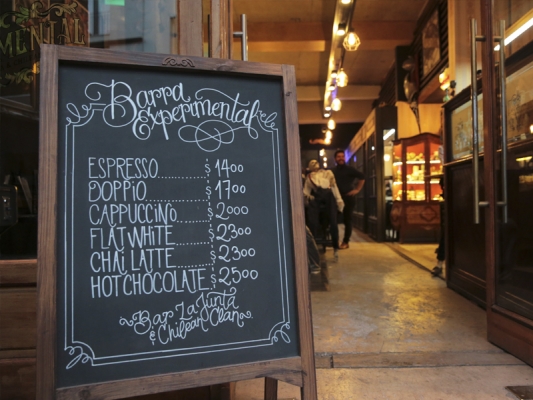 MENTAL
Barra
Experimental
ESPRESSO........ $1400
DOPPIO........ $1700
CAPPUCCINO........ $2000
FLAT WHITE........ $2300
CHAI LATTE........ $2300
HOT CHOCOLATE.. $2500
Bar La Junta
& Chilean Clan